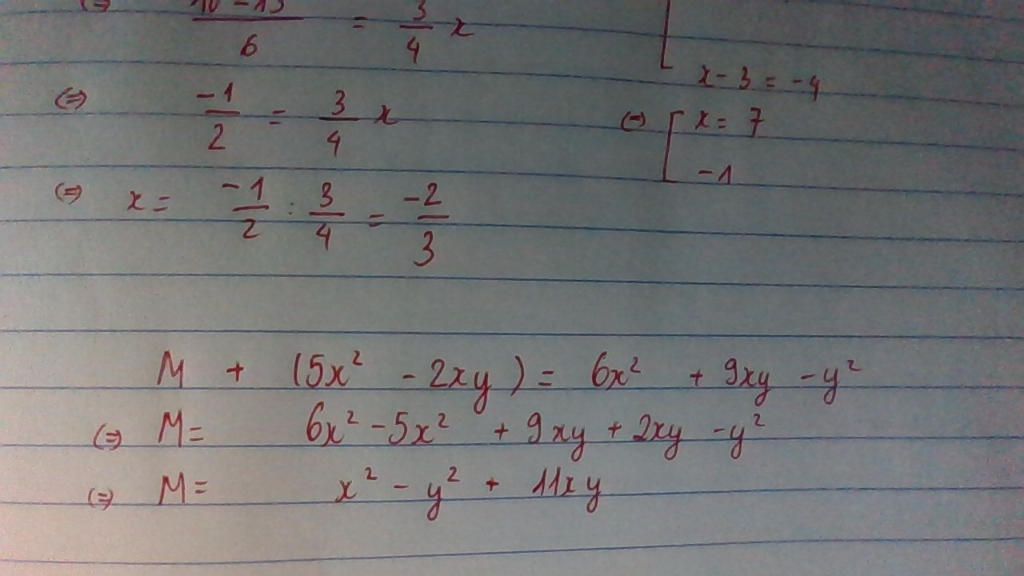 /6 = 3/4 x
x - 3 = -4
(=) -1/2 = 3/4 x
(=) [ x = 7
-1
(=) x = -1/2 : 3/4 = -2/3
M + (5x² - 2xy) = 6x² + 9xy - y²
(=) M = 6x² - 5x² + 9xy + 2xy - y²
(=) M = x² - y² + 11xy